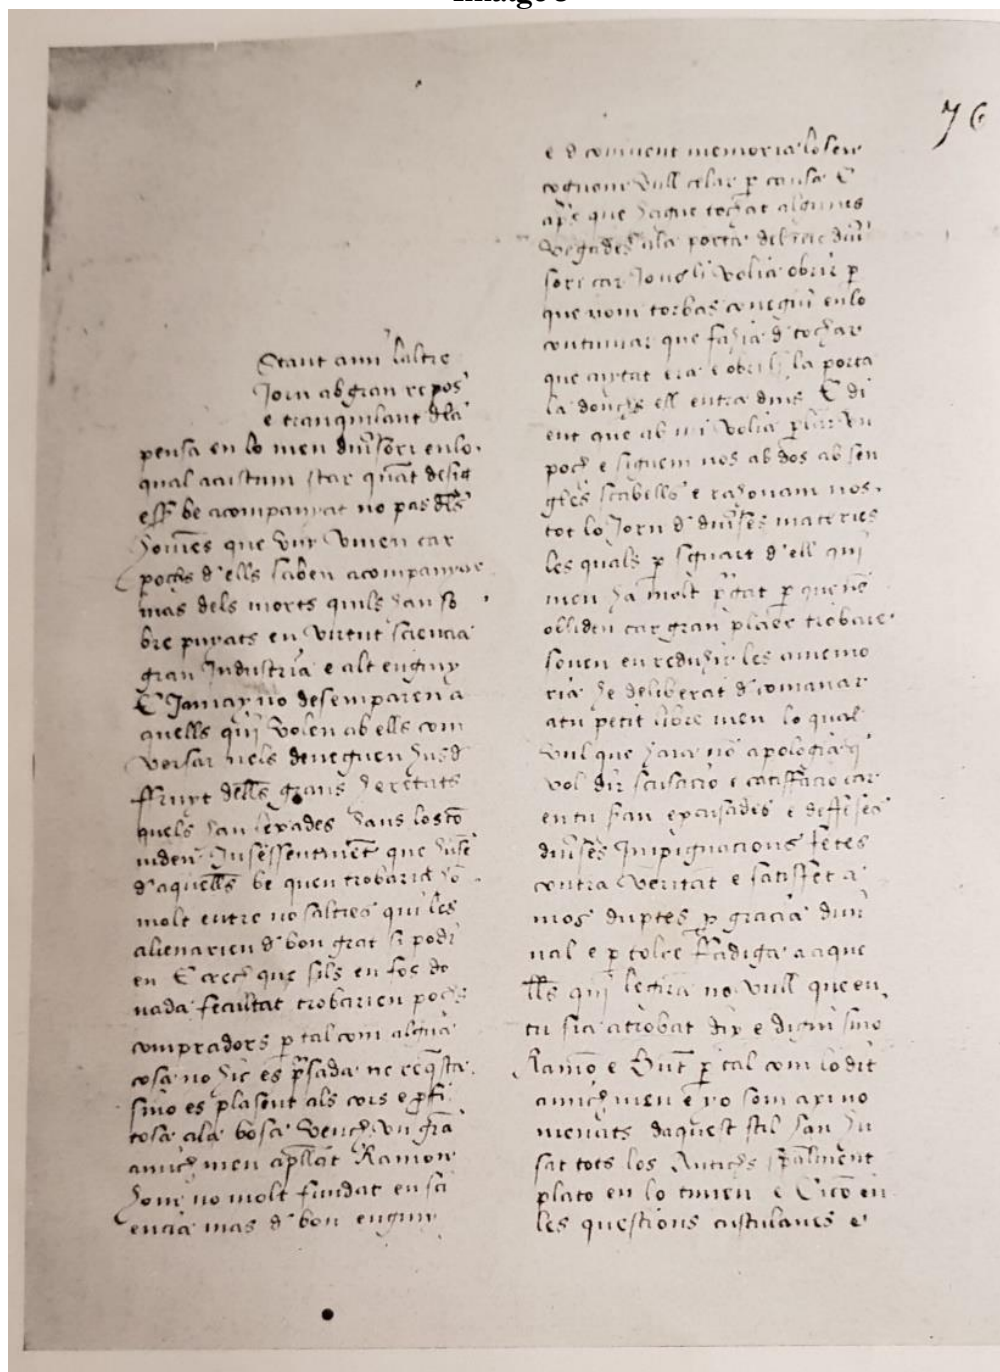 76
Stant ami laltre
Jorn ab gran repos
e tranquilant dla
pensa en lo meu diuisori enlo
qual acustum star quāt desig
esser be acompanyat no pas dells
homēs que vuy viuen car
pochs d'ells saben acompanyar
mas dels morts quils han so
bre puyats en virtut sciencia
gran Jndustria e alt enginy
E Jamay no desemparen a
quells qui volen ab ells com
versar nels deneguen hus d
ffruyt dells grans heretats
quels han lexades
d'aquells be quen trobariē hō
molt entre nosaltres qui les
alienarien d bon grat si podi
en E crech que sils en fos do
nada facultat trobarien pochs
compradors p tal com alguna
cosa no hic es psada ne reqsta
sino es plasent als cors e pfi
tosa ala bosa Vench vn grā
amich meu apllat Ramon
home no molt fundat en sci
encia mas d bon enginy
e d couinent memoria lo seu
cognom vull celar p causa E
aps que hague tochat algunes
vegades ala porta del meu diui
sori car Jo no li volia obrir p
que nom torbas conegui enlo
continuar que fahia d tochar
que cuytat era e obri li la porta
la donchs ell entra dins E di
ent que ab mi volia plar vn
poch e siguem nos abdos ab sen
gles scabells e rahonam nos
tot lo Jorn d diuses materies
les quals p esguart d'ell qui
men ha molt pgat p que nō
obliden car gran plaer trobare
souen en reduhir les a memo
ria he deliberat d comanar
atu petit libre meu lo qual
vul que haia nō apologia qi
vol dir scusacio e satisffacio car
en tu sēan excusades e deffeses
diuses Jnpugnacions fetes
contra veritat e satisffet a
mos duptes p gracia diui
nal e p tolre ffadiga aaque
lls qui legiran no vull que en
tu sia atrobat dix e digui sino
Ramō e Bnt p tal com lo dit
amich meu e yo som axi no
menats daquest stil han hu
sat tots los Antichs spālment
plato en lo timeu e Cicō en
les questions tusculanes e